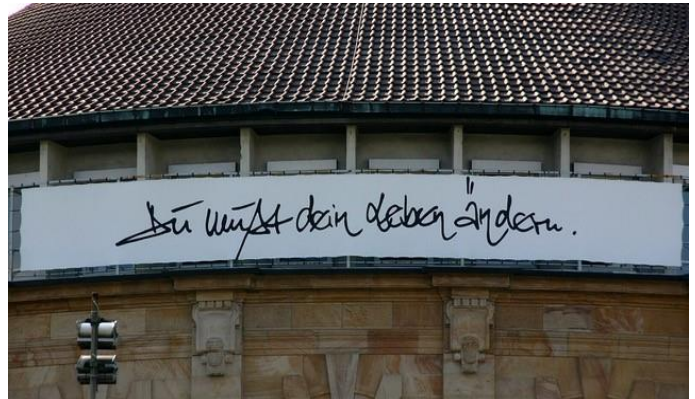 Du mußt dein Leben ändern.